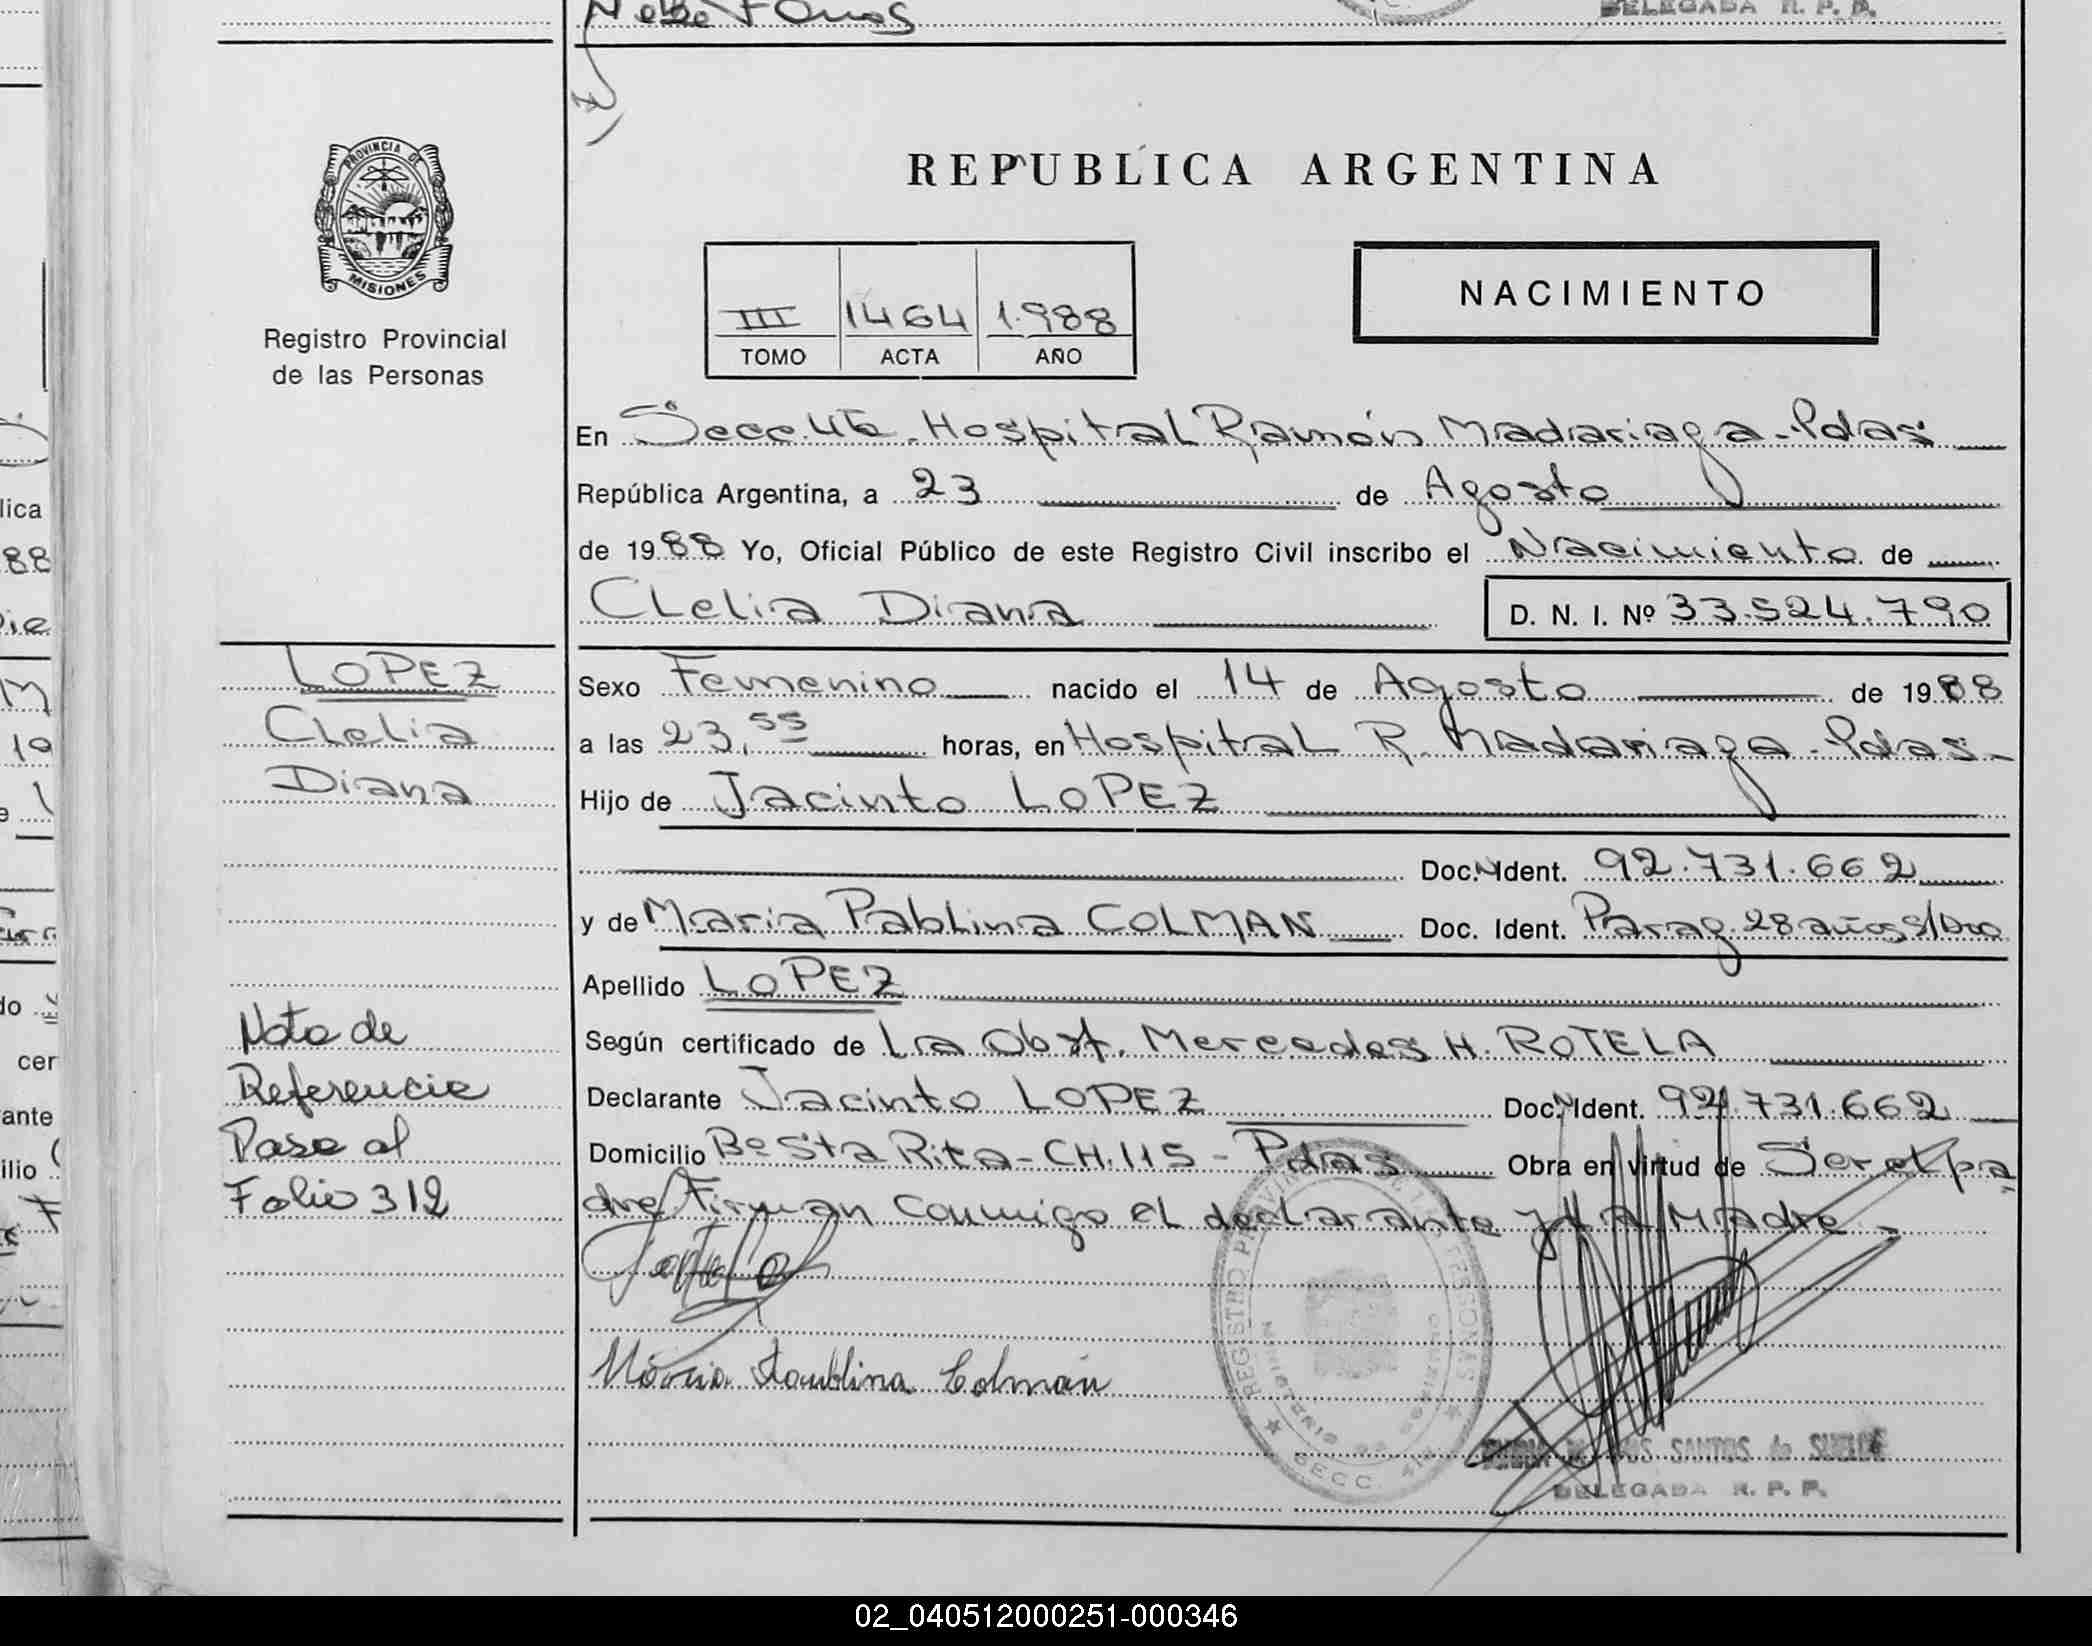 DELEGADA R. P. P.
PROVINCIA DE
MISIONES
Registro Provincial
de las Personas
REPUBLICA ARGENTINA
III 1464 1.988
TOMO ACTA AÑO
NACIMIENTO
En Secc. 4ta. Hospital Ramón Madariaga - Pdas
República Argentina, a 23 de Agosto
de 1988 Yo, Oficial Público de este Registro Civil inscribo el Nacimiento de
CLelia Diana D. N. I. Nº 33.524.790
LOPEZ
CLelia
Diana
Sexo Femenino nacido el 14 de Agosto de 1988
a las 23,55 horas, en Hospital R. Madariaga - Pdas -
Hijo de Jacinto LOPEZ
Doc.N Ident. 92.731.662
y de Maria Pablina COLMAN Doc. Ident. Parag. 28 años s/Dro
Apellido LOPEZ
Según certificado de La Obst. Mercedes H. ROTELA
Declarante Jacinto LOPEZ Doc.N Ident. 92.731.662
Domicilio Bº Sta Rita - CH. 115 - Pdas Obra en virtud de Ser el pa
dre, Firman Conmigo el declarante y LA MAdre -
Nota de
Referencia
Pase al
Folio 312
María Paublina Colmán
REGISTRO PROVINCIAL DE LAS PERSONAS
SECC. 4ta
SANTOS de
DELEGADA R. P. P.
lica
88
cer
ante
ilio
02_040512000251-000346